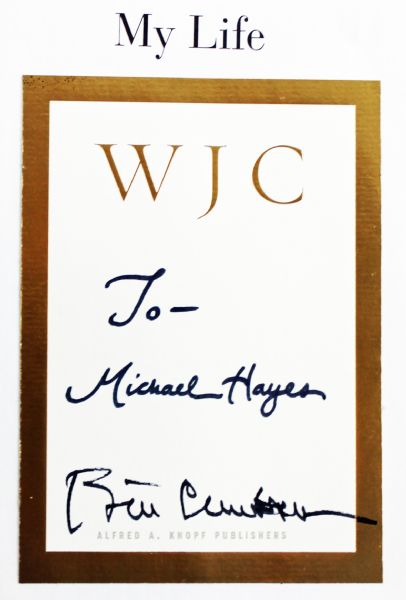 My Life
WJC
To—
Michael Hayes
Bill Clinton
ALFRED A. KNOPF PUBLISHERS